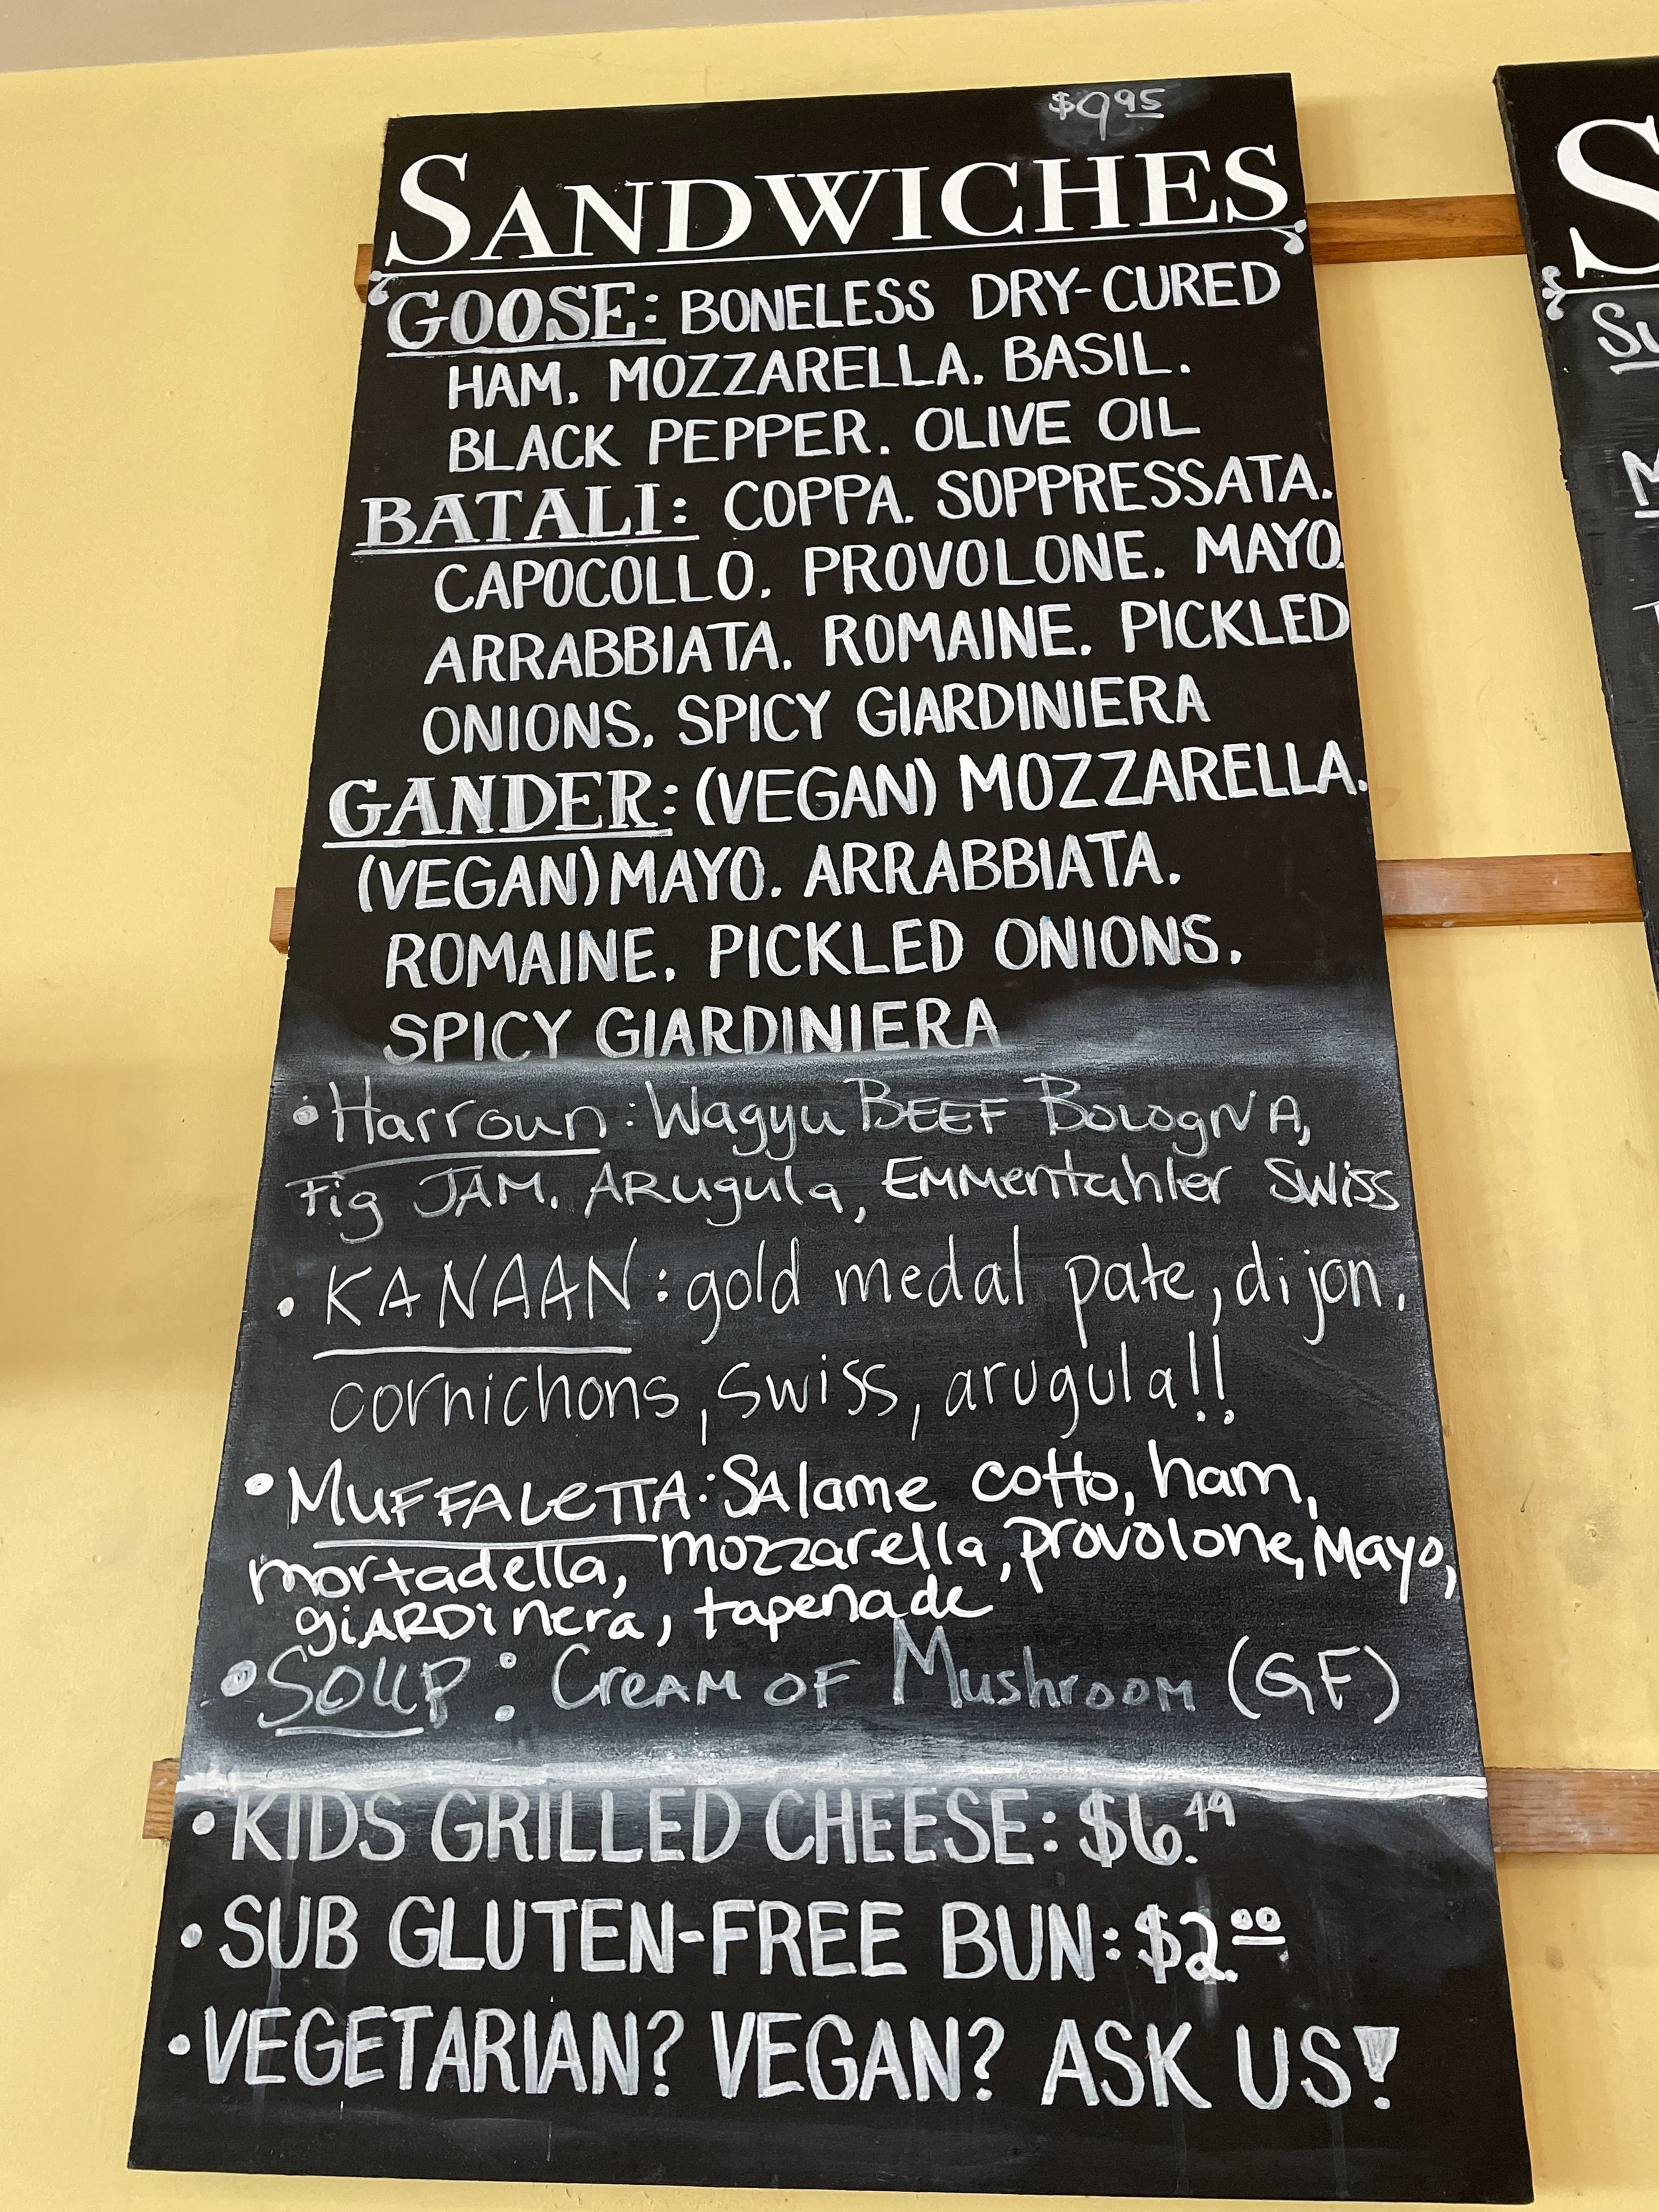 $9.95
SANDWICHES
GOOSE: BONELESS DRY-CURED
HAM. MOZZARELLA. BASIL.
BLACK PEPPER. OLIVE OIL
BATALI: COPPA. SOPPRESSATA.
CAPOCOLLO. PROVOLONE. MAYO.
ARRABBIATA. ROMAINE. PICKLED
ONIONS. SPICY GIARDINIERA
GANDER: (VEGAN) MOZZARELLA.
(VEGAN) MAYO. ARRABBIATA.
ROMAINE. PICKLED ONIONS.
SPICY GIARDINIERA
• Harroun: Wagyu BEEF BOLOGNA,
Fig JAM. ARugula, EMMentahler SWiss
• KANAAN: gold medal pate, dijon.
cornichons, swiss, arugula!!
• MUFFALETTA: SAlame cotto, ham,
mortadella, mozzarella, provolone, Mayo,
giARDinera, tapenade
• SOUP: CreAM OF MushrOOM (GF)
• KIDS GRILLED CHEESE: $6.49
• SUB GLUTEN-FREE BUN: $2.00
• VEGETARIAN? VEGAN? ASK US!
S
Su
M